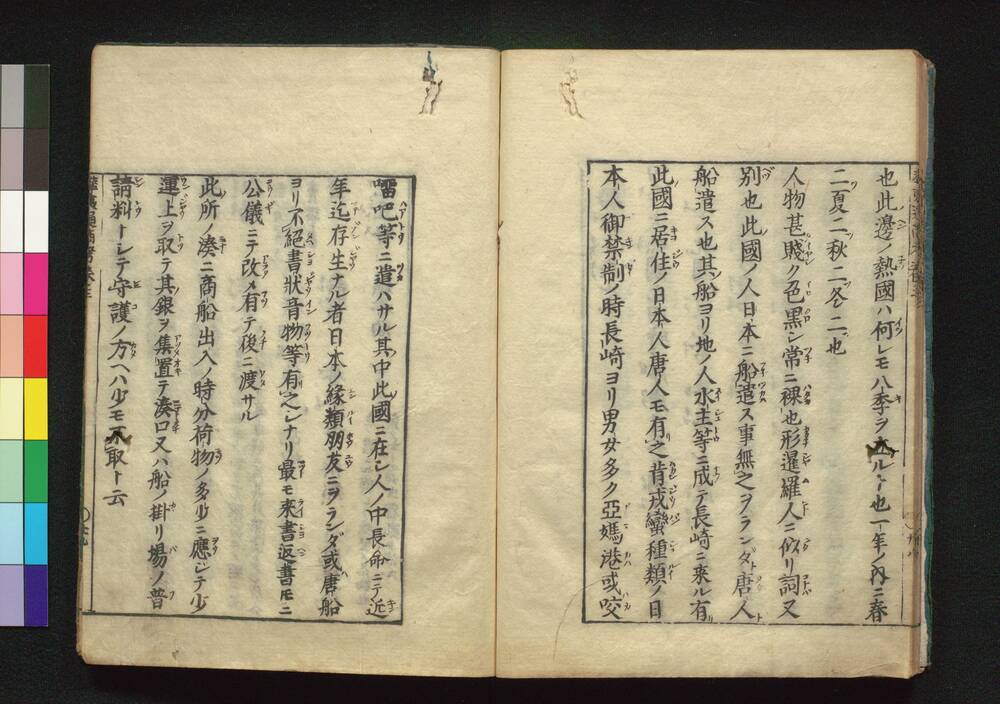 也此邊ノ熱國ハ何レモ八季ヲ立ルト也一年ノ内ニ春
二夏二秋二冬二也
人物甚賤ク色黒シ常ニ裸也形暹羅人ニ似リ詞又
別也此國ノ人日本ニ船遣ス事無之ヲランダ唐人
船遣ス也其船ヨリ地ノ人水主等ニ成テ長崎ニ来ル有
此國ニ居住ノ日本人唐人モ有之昔戎蠻種類ノ日
本人御禁制ノ時長崎ヨリ男女多ク亞媽港或咬
𠺕吧等ニ遣ハサル其中此國ニ在シ人ノ中長命ニテ近
年迄存生ナル者日本ノ緣類朋友ニヲランダ或唐船
ヨリ不絕書狀音物等有之シナリ最モ來書返書𪜈ニ
公儀ニテ改メ有テ後ニ渡サル
此所ノ湊ニ商船出入ノ時分荷物ノ多少ニ應ジテ少
運上ヲ取テ其銀ヲ集置テ湊口又ハ船ノ掛リ場ノ普
請料トシテ守護ノ方ヘハ少モ不取ト云